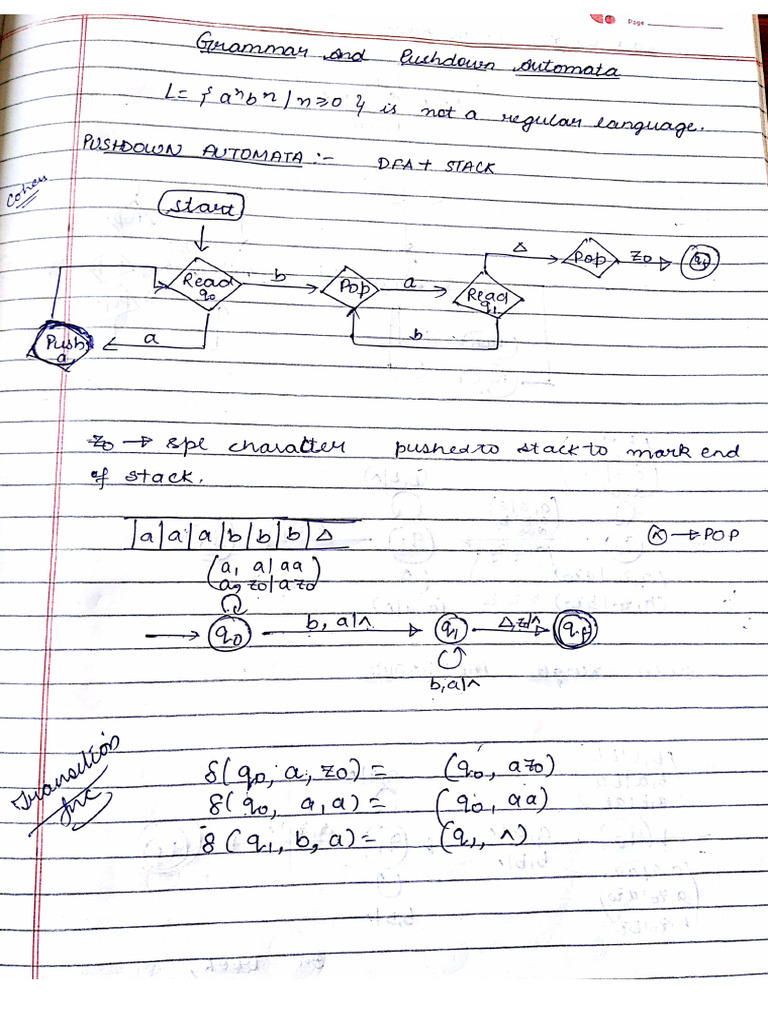 Page
Grammar and Pushdown Automata
L = { aⁿbⁿ / n ≥ 0 } is not a regular language.
PUSHDOWN AUTOMATA :- DFA + STACK
Cohen
Start
Read q0
b
Pop
a
Read q1
Δ
Pop
z0
qf
Push a
a
b
z0 → spl character pushed to stack to mark end
of stack.
|a|a|a|b|b|b|Δ
^ → POP
(a, a|aa
a, z0|az0)
q0
b, a|^
q1
Δ, z0|^
qf
b, a|^
Transition
func
δ(q0, a, z0) = (q0, az0)
δ(q0, a, a) = (q0, aa)
δ(q1, b, a) = (q1, ^)